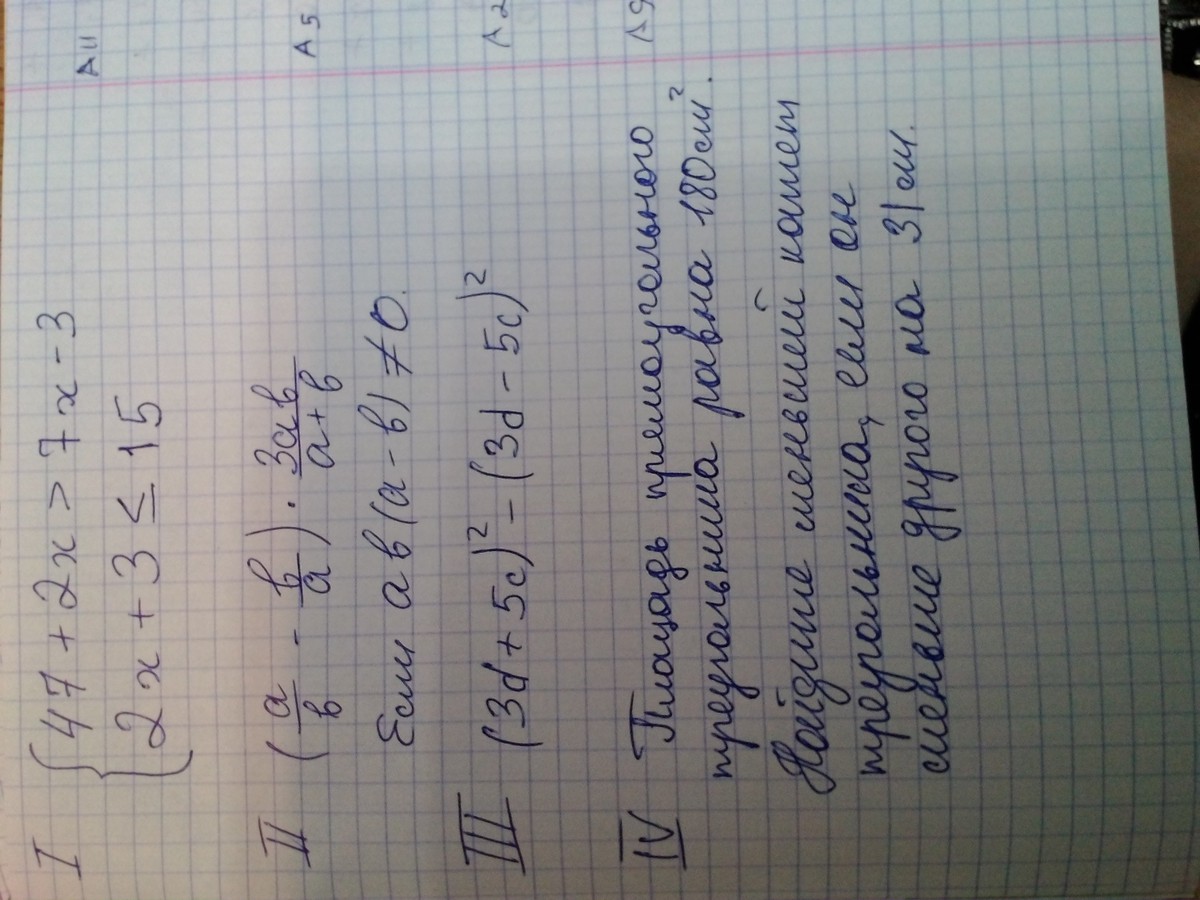 I { 47 + 2x > 7x - 3
2x + 3 ≤ 15
A11
II (a/в - в/a) · 3aв/a+в
A5
Если aв(a-в) ≠ 0.
III (3d + 5c)² - (3d - 5c)²
A2
IV Площадь прямоугольного
треугольника равна 180см².
Найдите меньший катет
треугольника, если он
меньше другого на 31 см.
A9